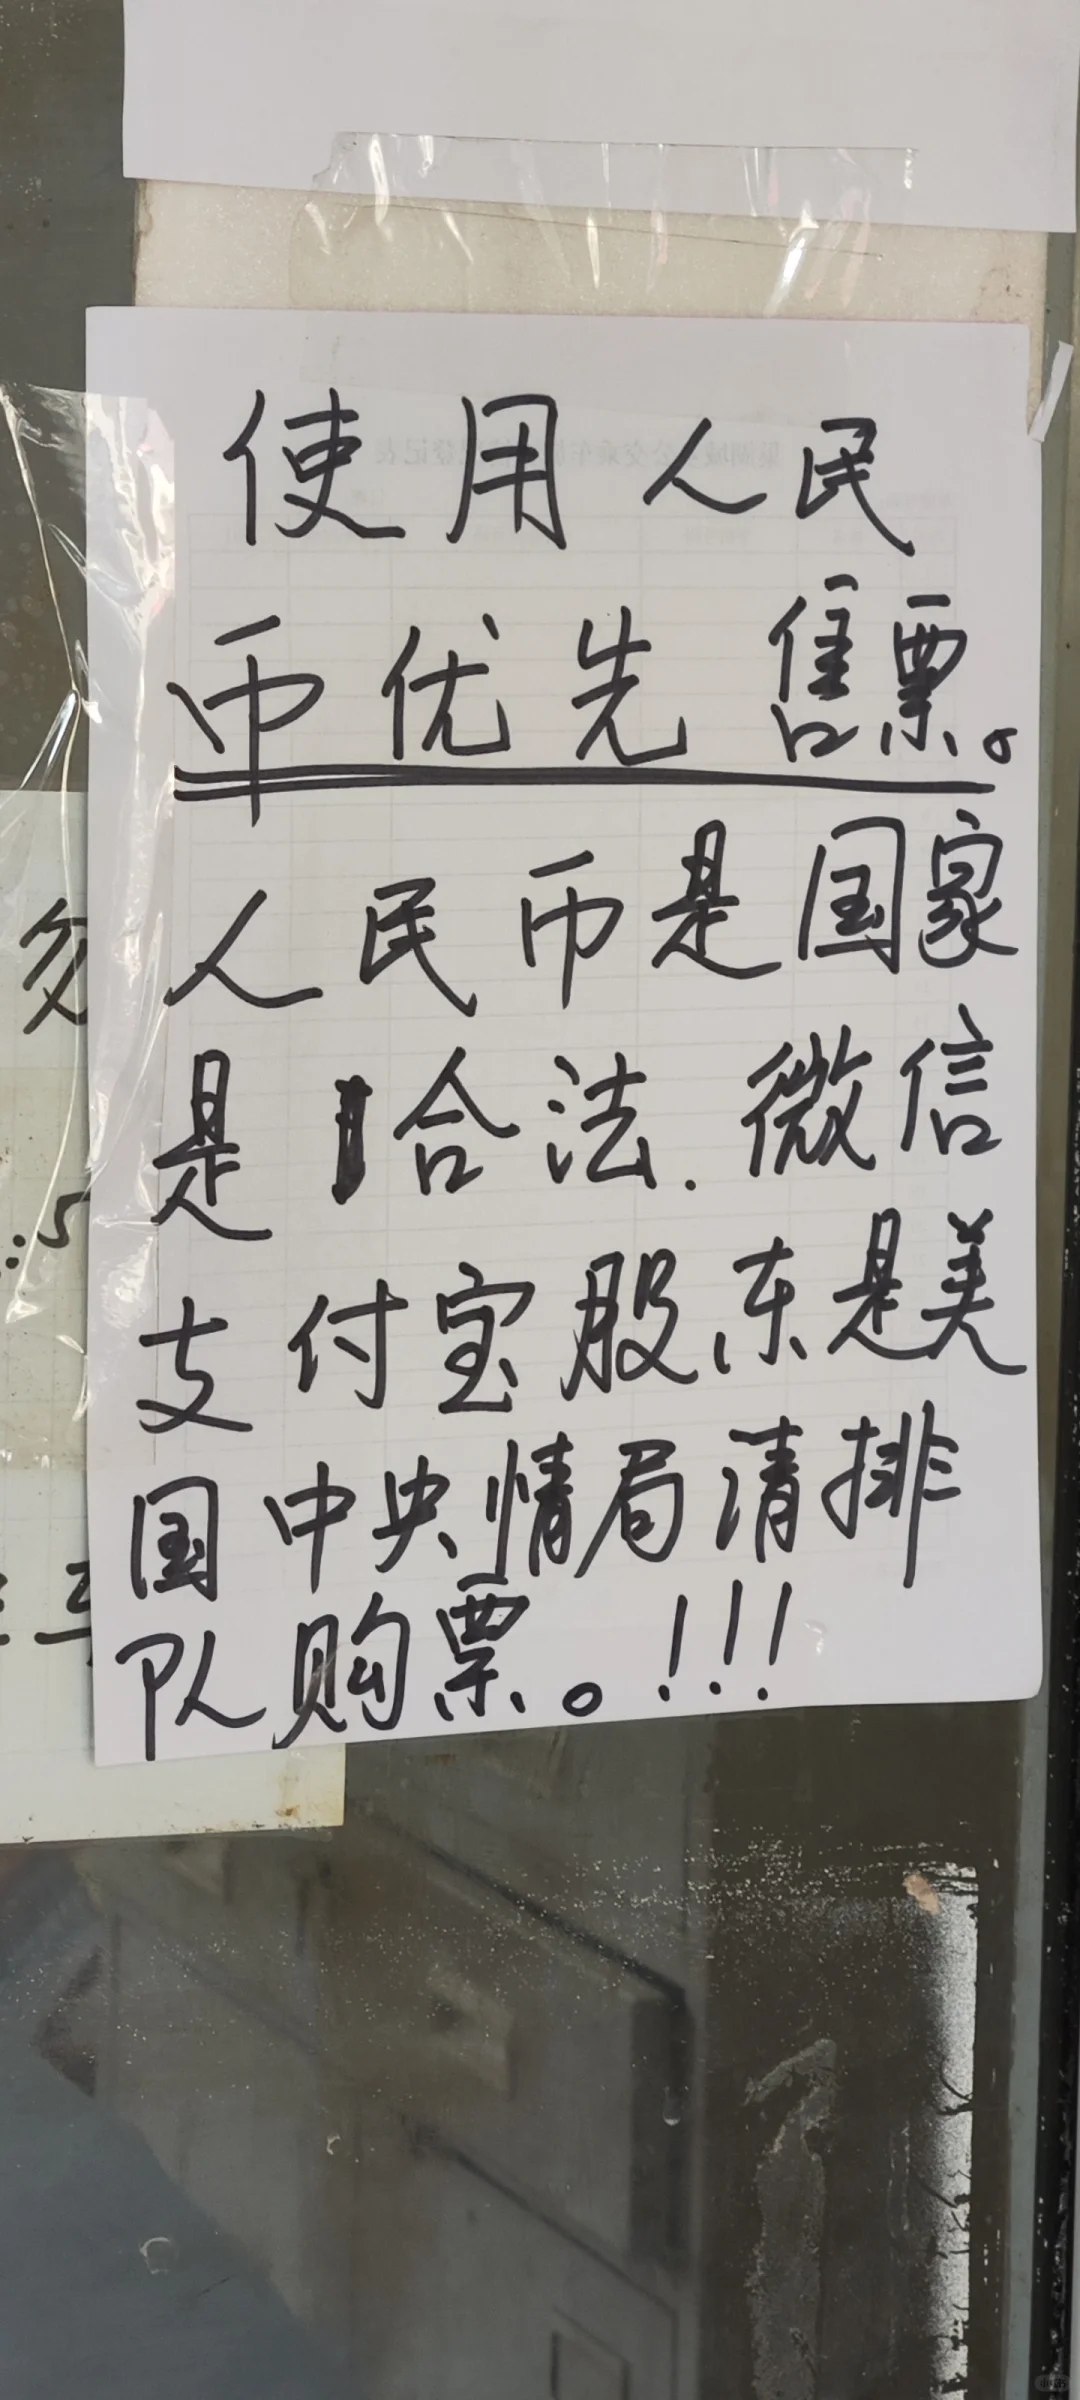 使用人民
币优先售票。
人民币是国家
是合法.微信
支付宝股东是美
国中央情局清排
队购票。!!!
勿